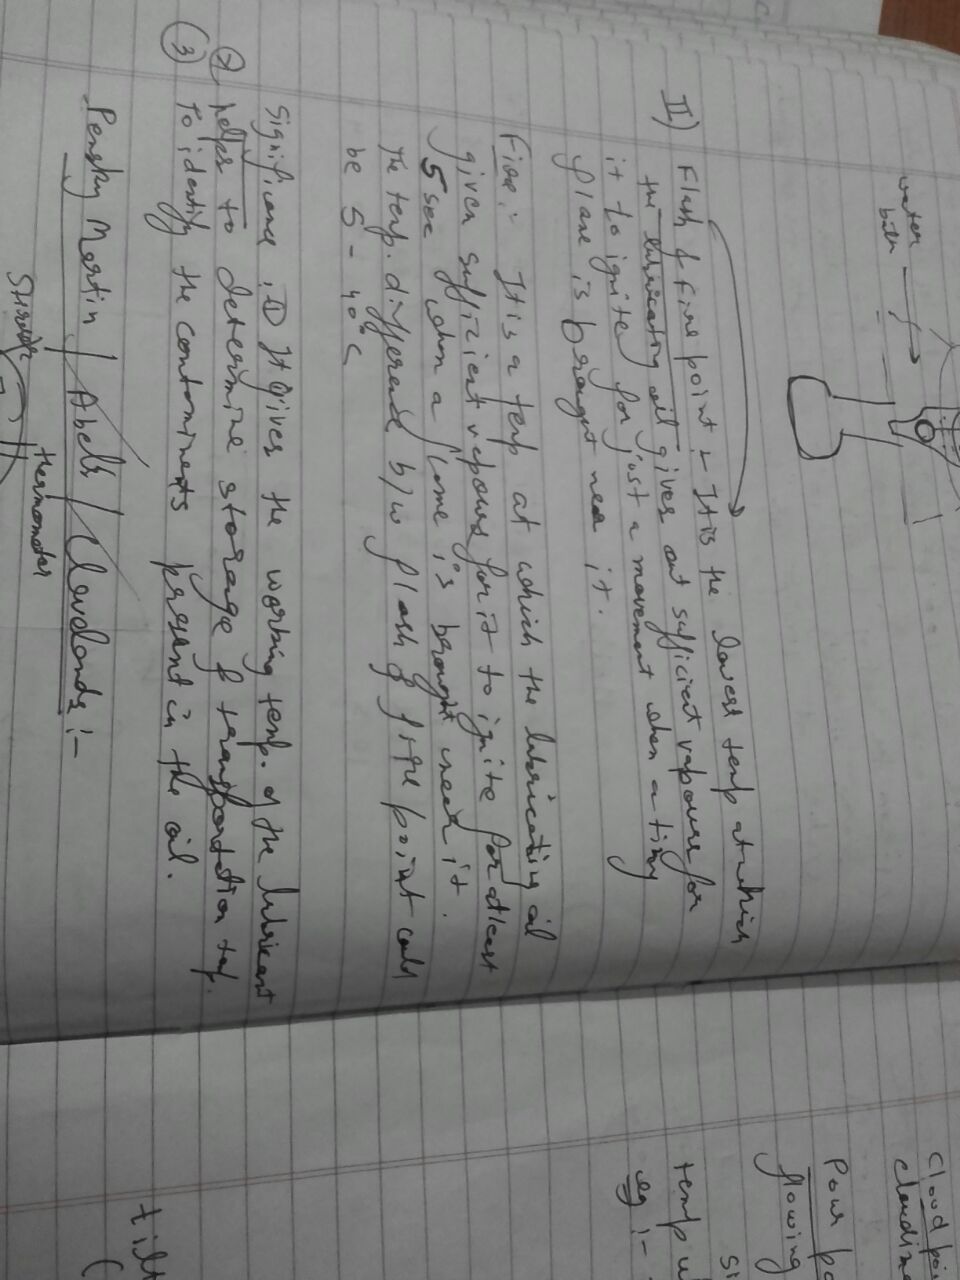 water
bath
II) Flash & fire point :- It is the lowest temp at which
the lubricating oil gives out sufficient vapours for
it to ignite for just a movement when a tiny
flame is brought near it.
Fire :- It is a temp at which the lubricating oil
given sufficient vapours for it to ignite for atleast
5 sec when a flame is brought near it.
The temp. difference b/w flash & fire point could
be 5 - 40°C
Significance :① It gives the working temp. of the lubricant
② helps to determine storage & transportation temp.
(3) To identify the contaminents present in the oil.
Pensky Martin / Abel's / Clevelands :-
Stirrer
thermometer
Cloud poi
cloudin
Pour po
flowing
Si
temp w
eg :-
tilt